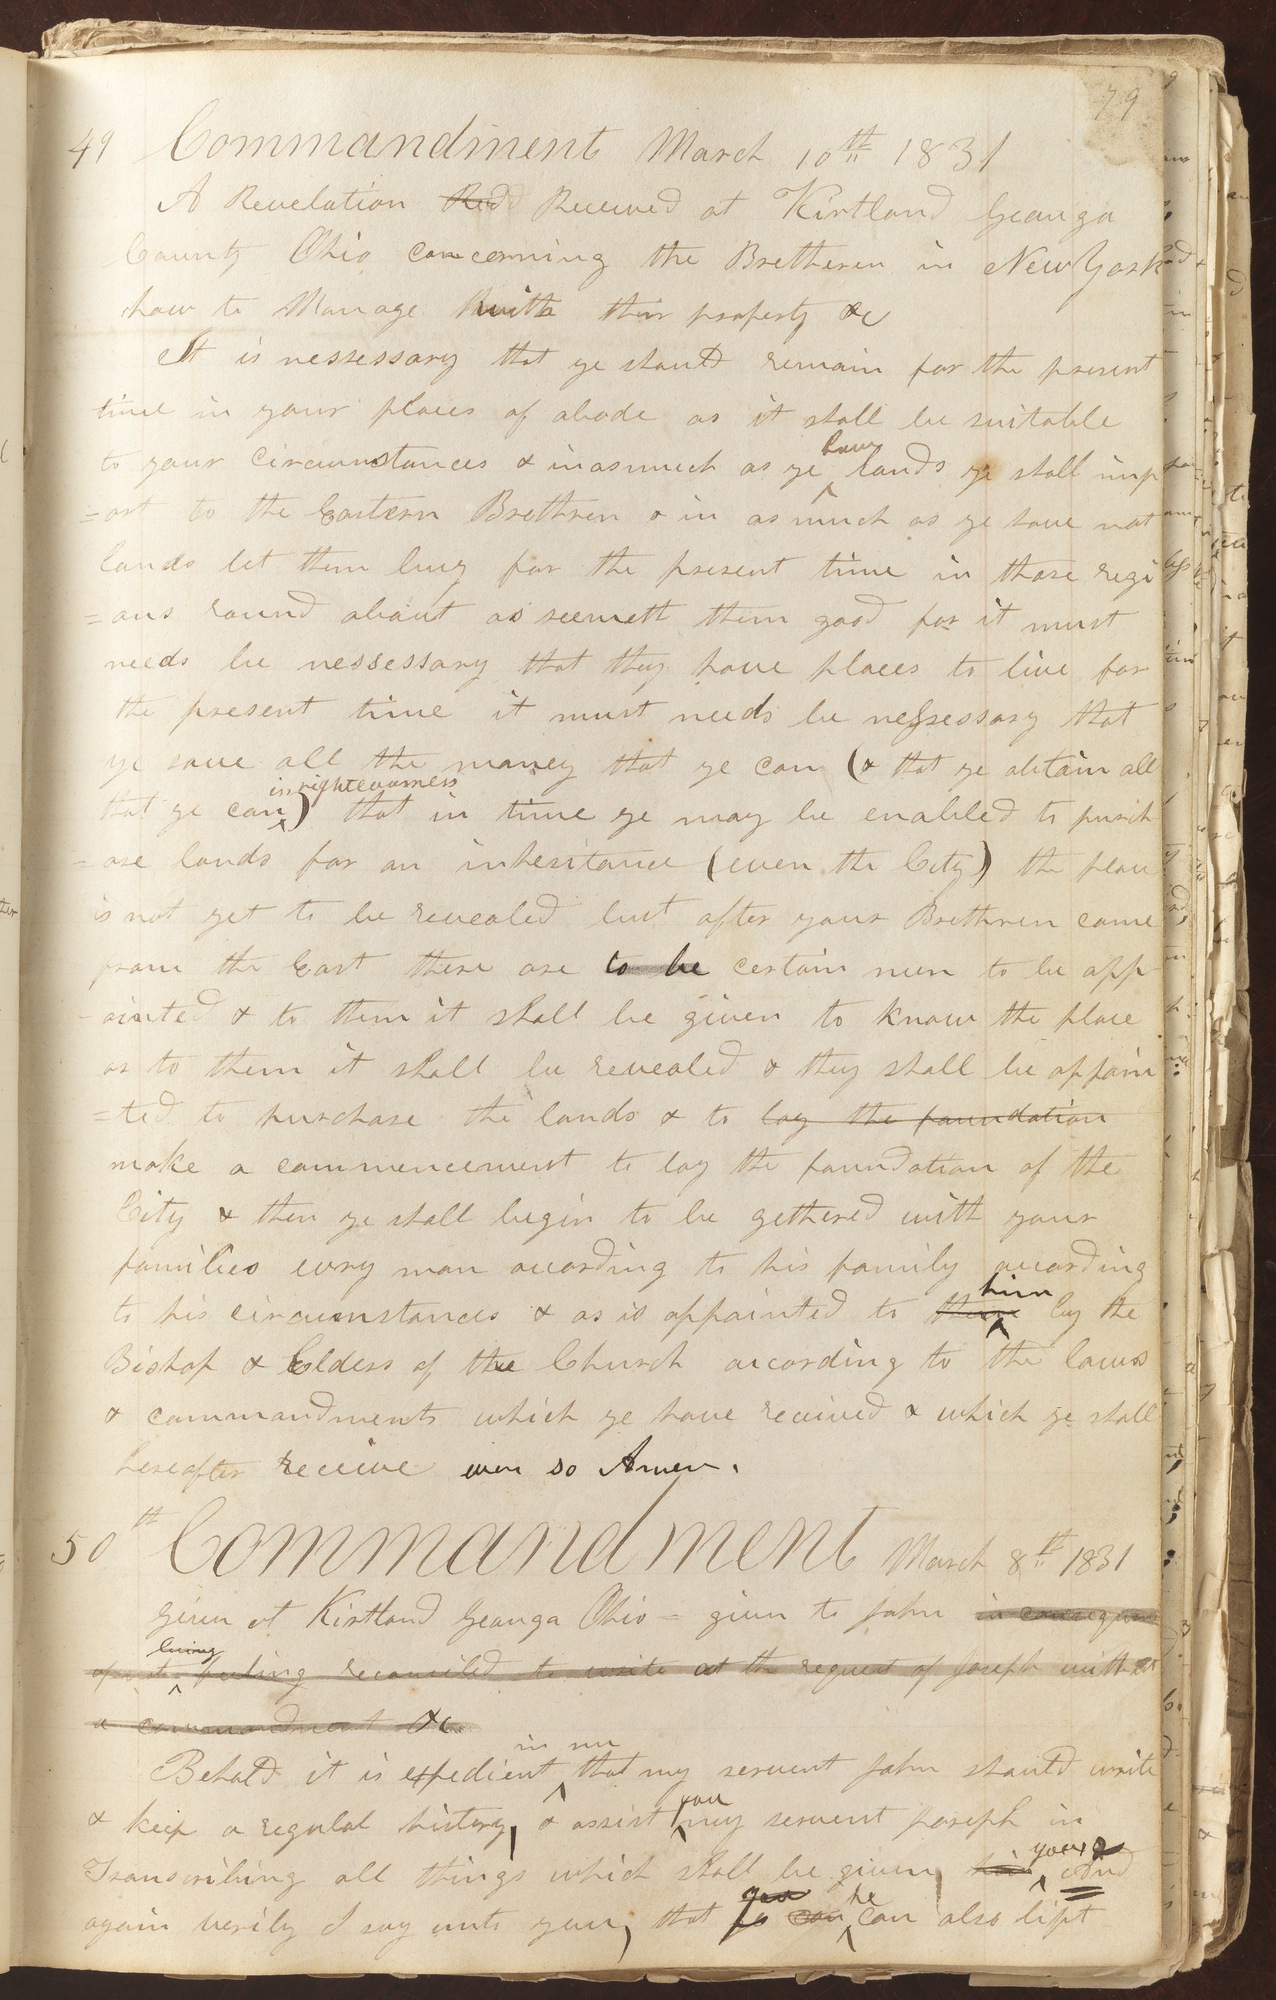 79
49 Commandment March 10th 1831
A Revelation Recd Received at Kirtland Geauga
County Ohio concerning the Bretheren in New York
how to Manage with thir property &c
It is nessessary that ye should remain for the present
time in your places of abode as it shall be suitable
have
to your circumstances & inasmuch as ye lands ye shall imp
=art to the Eastern Brethren & in as much as ye have not
lands let them buy for the present time in those regi
=ons round about as seemeth them good for it must
needs be nessessary that they have places to live for
the present time it must needs be nessessary that
ye save all the money that ye can (& that ye obtain all
in righteousness
that ye can) that in time ye may be enabled to purch
=ase lands for an inheritance (even the City) the place
is not yet to be revealed but after your Brethren come
from the East there are to be certain men to be app
-ointed & to them it shall be given to know the place
or to them it shall be revealed & they shall be appoin
=ted to purchase the lands & to lay the foundation
make a commencement to lay the foundation of the
City & then ye shall begin to be gethered with your
families evry man according to his family according
him
to his circumstances & as is appointed to them by the
Bishop & Elders of the Church according to the laws
& commandments which ye have received & which ye shall
hereafter receive even so Amen.
50th Commandment March 8th 1831
given at Kirtland Geauga Ohio = given to John in consequence
being
of not feeling reconciled to write at the request of Joseph without
a commandment &c
in me
Behold it is expedient that my servent John should write
you
& keep a regulal history, & assist my servent Joseph in
you
Transcribing all things which shall be given him and
you he
again verily I say unto you, that can can also lift